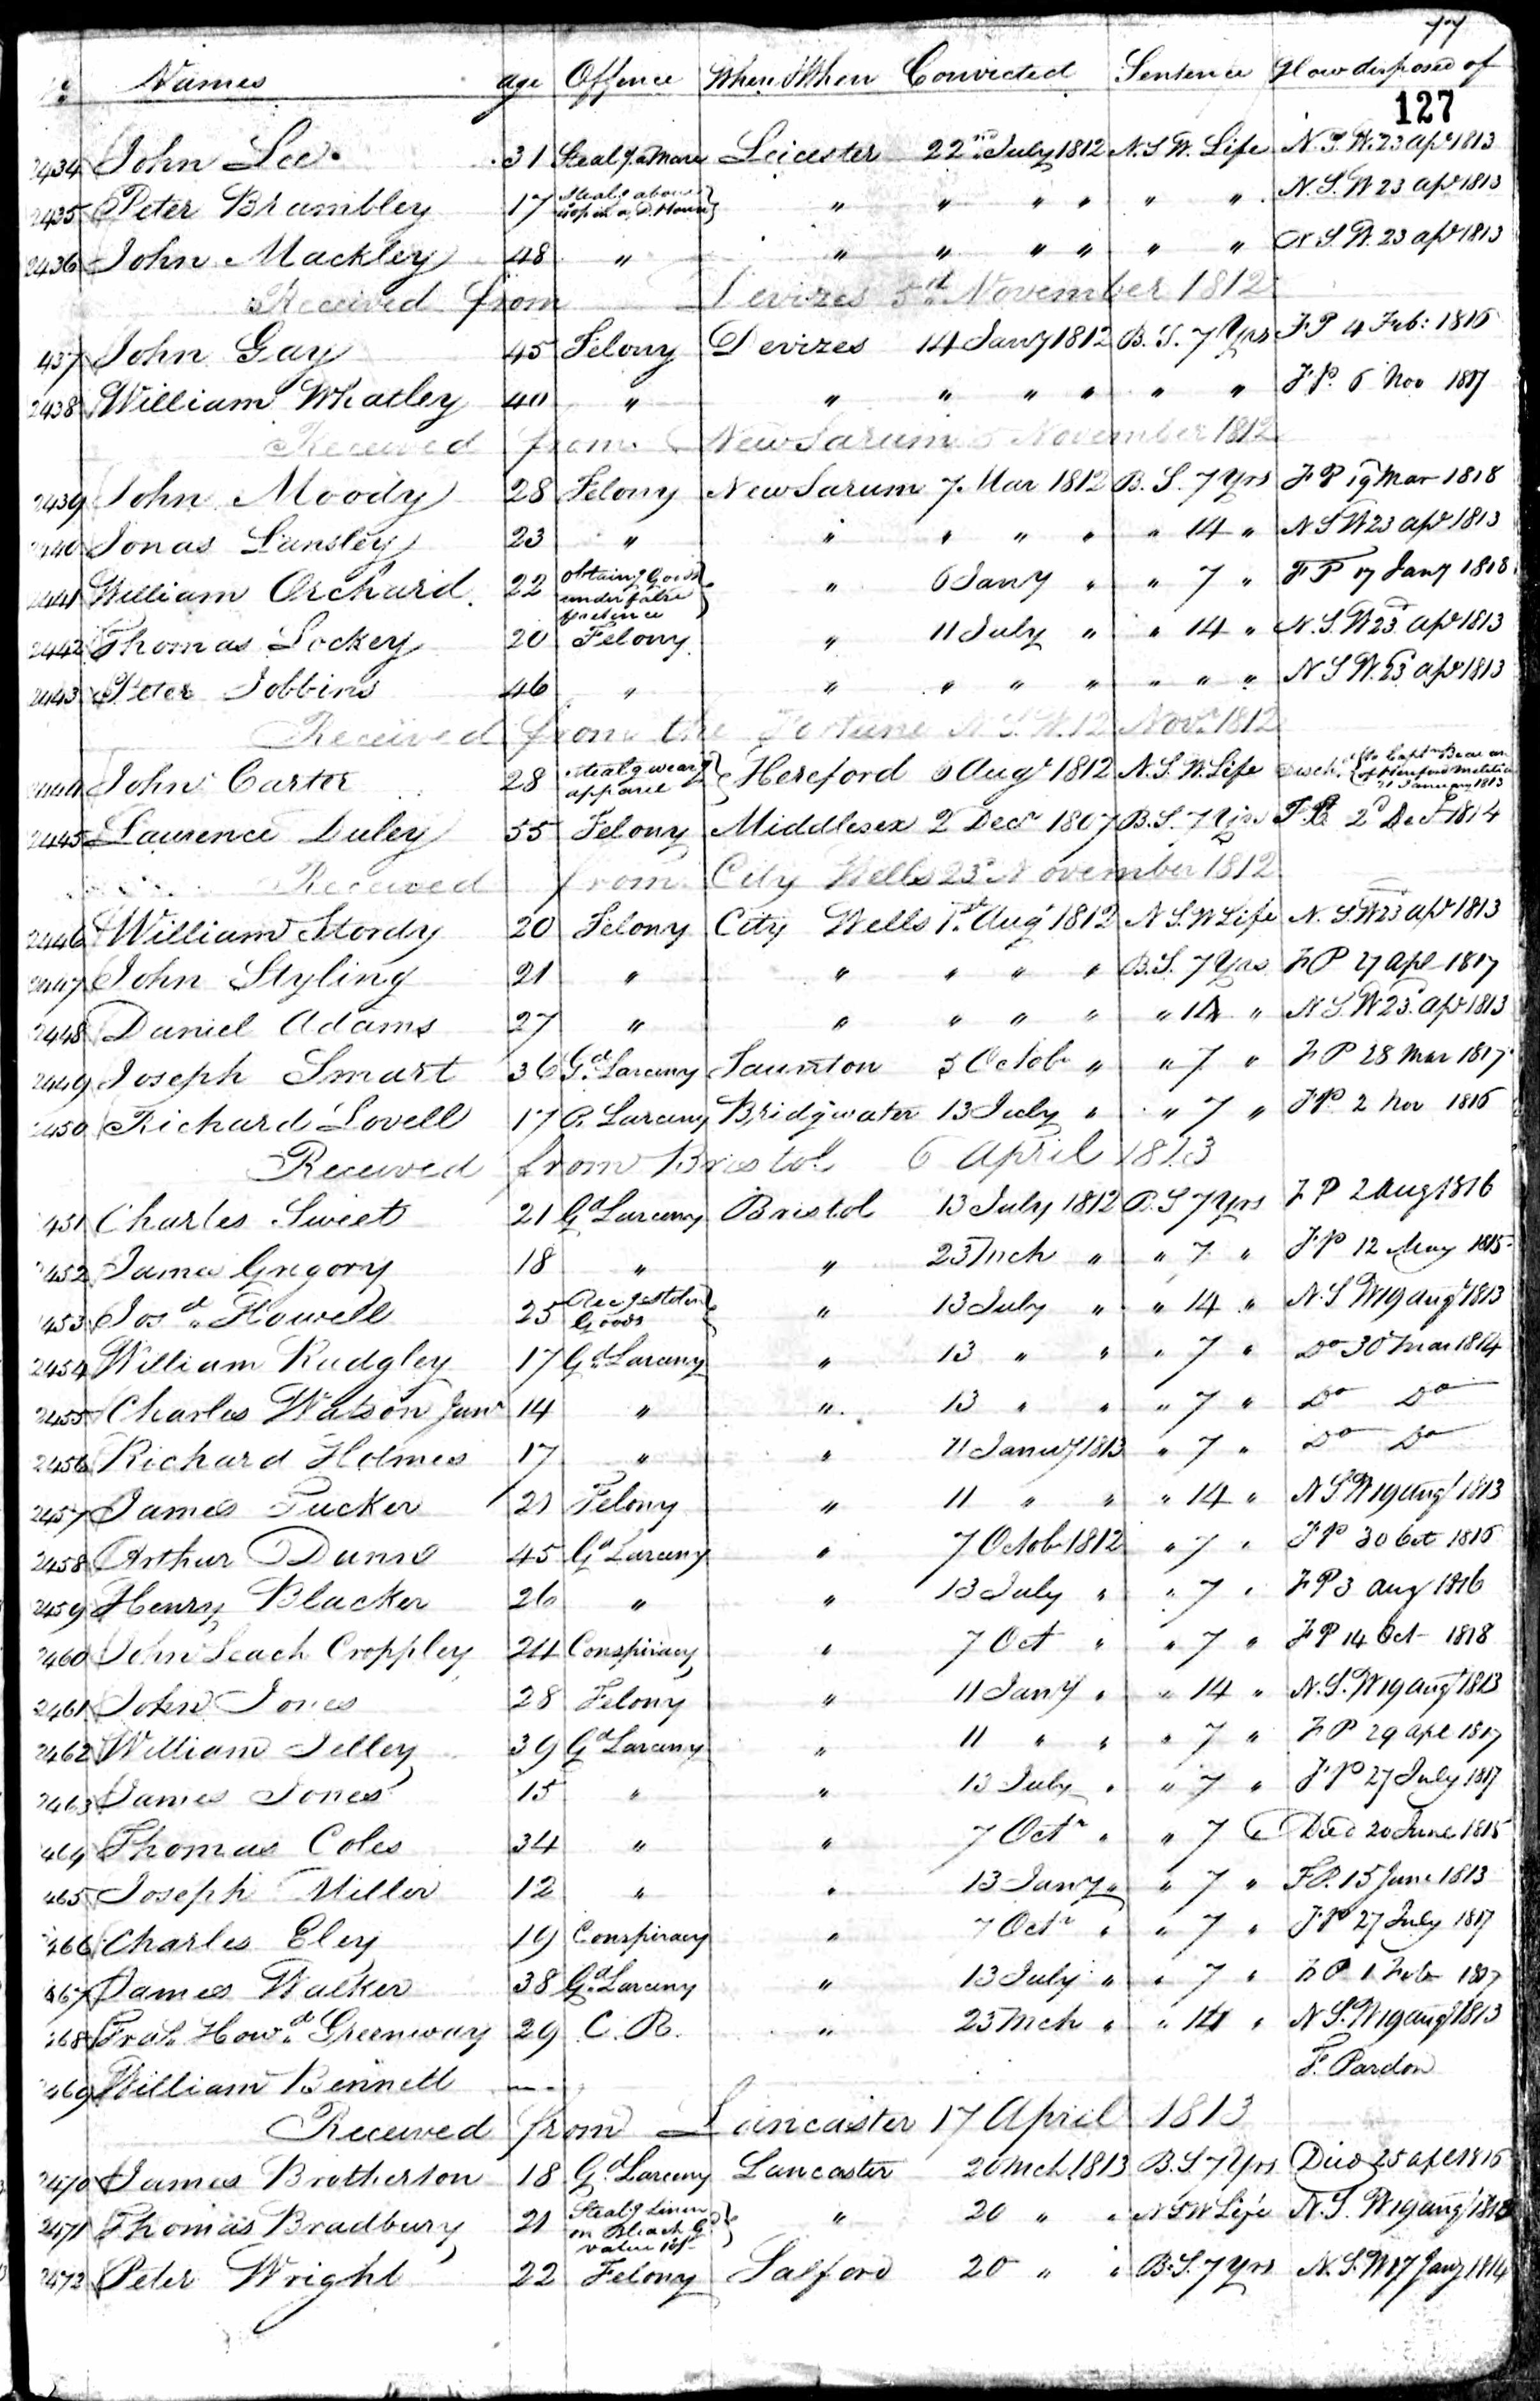 77
No Names age Offence Where & When Convicted Sentence How disposed of
127
2434 John Lee 31 Stealg a Mare Leicester 22nd July 1812 N.S.W. Life N.S.W. 23 apl 1813
2435 Peter Brambley 17 Stealg above in a D. House " " " " " " N.S.W 23 apl 1813
2436 John Mackley 48 " " " " " " " N.S.W. 23 apl 1813
Received from Devizes 5th November 1812
437 John Gay 45 Felony Devizes 14 Jany 1812 B.S. 7 Yrs F P 4 Feb: 1816
2438 William Whatley 40 " " " " " " " F.P. 6 Nov 1817
Received from New Sarum 5 November 1812
2439 John Moody 28 Felony New Sarum 7 Mar 1812 B.S. 7 Yrs F P 19 Mar 1818
2440 Jonas Lansley 23 " " " " " " 14 " N S W 23 apl 1813
2441 William Orchard 22 obtaing Goods under false pretence " 6 Jany " " 7 " F P 17 Jany 1818
2442 Thomas Lockey 20 Felony " 11 July " " 14 " N.S.W 23 apl 1813
2443 Peter Jobbins 46 " " " " " " " " N S W. 23 apl 1813
Received from the Fortune N.S.W. 12 Novr 1812
2444 John Carter 28 Stealg wearg apparel Hereford 6 Augt 1812 N.S.W. Life Disch. to Captn of Hereford Militia January 1813
2445 Laurence Duley 55 Felony Middlesex 2 Decr 1807 B.S. 7 Yrs F.P. 2d Decr 1814
Received from City Wells 23d November 1812
2446 William Stordy 20 Felony City Wells 1st Augt 1812 N S.W Life N. S.W 23 apl 1813
2447 John Styling 21 " " " " " B.S. 7 Yrs F P 27 apl 1817
2448 Daniel Adams 27 " " " " " " 14 " N S.W 23 apl 1813
2449 Joseph Smart 36 Gd Larceny Taunton 5 Octob " " 7 " F P 28 Mar 1817
2450 Richard Lovell 17 P. Larceny Bridgwater 13 July " " 7 " F P 2 Nov 1816
Received from Bristol 6 April 1813
451 Charles Sweet 21 Gd Larceny Bristol 13 July 1812 B.S 7 Yrs F P 2 Aug 1816
2452 James Gregory 18 " " 23 Mch " " 7 " F P 12 May 1815
453 Josh Howell 25 Recg stolen Goods " 13 July " " 14 " N.S W 19 augt 1813
2454 William Rudgley 17 Gd Larceny " 13 " " " 7 " Do 30 Mar 1814
2455 Charles Watson Junr 14 " " 13 " " " 7 " Do Do
2456 Richard Holmes 17 " " 11 Januy 1813 " 7 " Do Do
2457 James Tucker 21 Felony " 11 " " " 14 " N S W 19 augt 1813
2458 Arthur Dunn 45 Gd Larceny " 7 Octob 1812 " 7 " F P 30 Oct 1816
2459 Henry Blacker 26 " " 13 July " " 7 " F P 3 Aug 1816
2460 John Leach Croppley 24 Conspiracy " 7 Oct " " 7 " F P 14 Oct 1818
2461 John Jones 28 Felony " 11 Jany " " 14 " N.S.W 19 augt 1813
2462 William Jelley 39 Gd Larceny " 11 " " " 7 " F P 29 apl 1817
2463 James Jones 15 " " 13 July " " 7 " F P 27 July 1817
464 Thomas Coles 34 " " 7 Octr " " 7 " Died 20 June 1815
465 Joseph Miller 12 " " 13 Jany " " 7 " F.P. 15 June 1813
466 Charles Eley 19 Conspiracy " 7 Octr " " 7 " F P 27 July 1817
467 James Walker 38 Gd Larceny " 13 July " " 7 " F P 1 Feb 1817
268 Fras Howd Greenway 29 C. R. " 23 Mch " " 14 " N S.W 19 augt 1813
469 William Bennett F. Pardon
Received from Lancaster 17 April 1813
2470 James Brotherton 18 Gd Larceny Lancaster 20 Mch 1813 B.S 7 Yrs Died 25 apl 1816
2471 Thomas Bradbury 21 Stealg Linen on Bleach G. value " 20 " " N S W Life N.S. W 19 augt 1813
2472 Peter Wright 22 Felony Salford 20 " " B.S. 7 Yrs N.S.W 17 Jany 1814